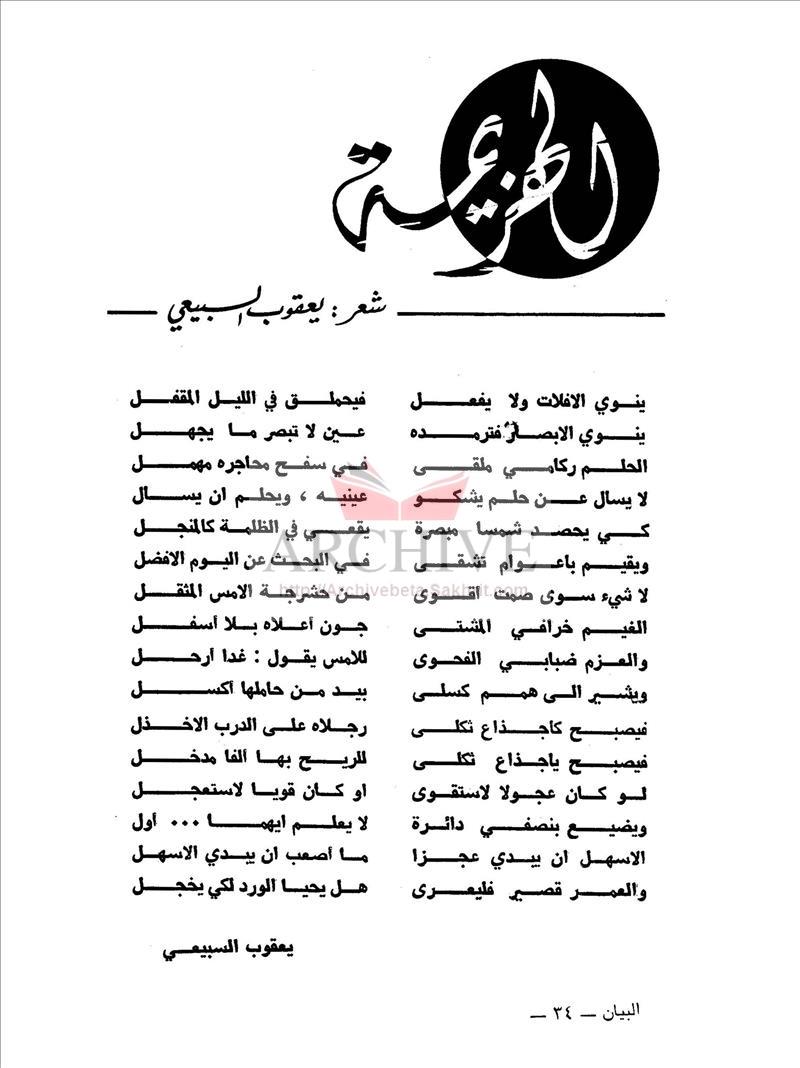 الهزيمة
شعر : يعقوب السبيعي
ينوي الافلات ولا يفعل فيحملق في الليل المقفل
ينوي الابصار فترمده عين لا تبصر ما يجهل
الحلم ركامي ملقى في سفح محاجره مهمل
لا يسال عن حلم يشكو عينيه ، ويحلم ان يسال
كي يحصد شمسا مبصرة يقعي في الظلمة كالمنجل
ويقيم باعوام تشقى في البحث عن اليوم الافضل
لا شيء سوى صمت اقوى من حشرجة الامس المثقل
الغيم خرافي المشتى جون أعلاه بلا أسفل
والعزم ضبابي الفحوى للامس يقول : غدا أرحل
ويشير الى همم كسلى بيد من حاملها أكسل
فيصبح كأجذاع ثكلى رجلاه على الدرب الاخذل
فيصبح ياجذاع ثكلى للريح بها ألفا مدخل
لو كان عجولا لاستقوى او كان قويا لاستعجل
ويضيع بنصفي دائرة لا يعلم ايهما ... أول
الاسهل ان يبدي عجزا ما أصعب ان يبدي الاسهل
والعمر قصير فليعرى هل يحيا الورد لكي يخجل
يعقوب السبيعي
البيان – ٣٤ –
ARCHIVE
http://Archivebeta.Sakhrit.com